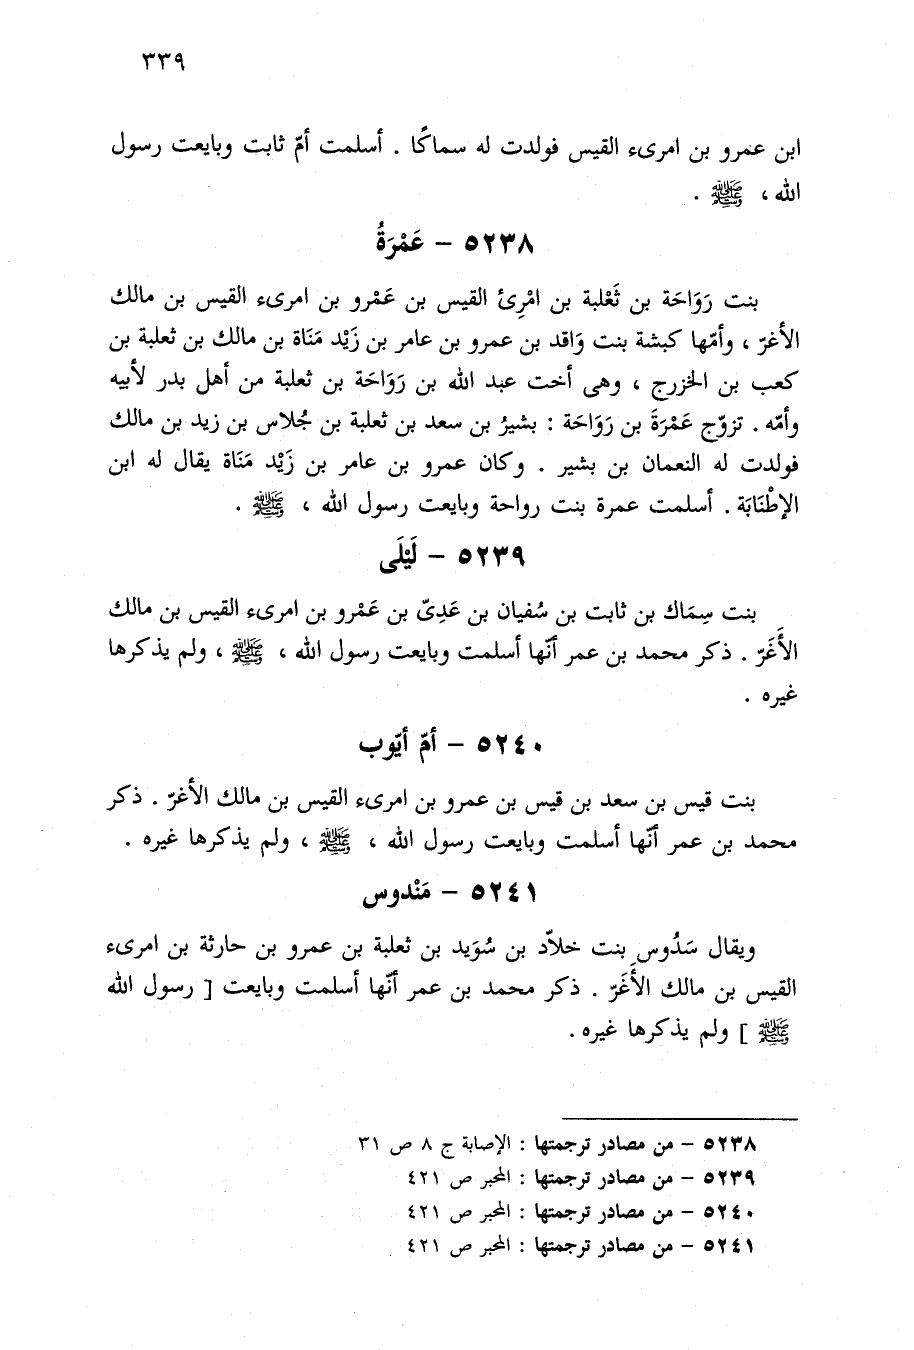 ٣٣٩
ابن عمرو بن امرىء القيس فولدت له سماكًا . أسلمت أمّ ثابت وبايعت رسول
الله ، ﷺ .
٥٢٣٨ – عَمْرَةُ
بنت رَوَاحَة بن ثَعْلبة بن امْرِئ القيس بن عَمْرو بن امرىء القيس بن مالك
الأغرّ ، وأمّها كبشة بنت وَاقد بن عمرو بن عامر بن زَيْد مَنَاة بن مالك بن ثعلبة بن
كعب بن الخزرج ، وهى أخت عبد الله بن رَوَاحَة بن ثعلبة من أهل بدر لأبيه
وأمّه . تزوّج عَمْرَةَ بن رَوَاحَة : بشيرُ بن سعد بن ثعلبة بن جُلاس بن زيد بن مالك
فولدت له النعمان بن بشير . وكان عمرو بن عامر بن زَيْد مَنَاة يقال له ابن
الإطْنَابَة . أسلمت عمرة بنت رواحة وبايعت رسول الله ، ﷺ .
٥٢٣٩ – لَيْلَى
بنت سِمَاك بن ثابت بن سُفيان بن عَدِىّ بن عَمْرو بن امرىء القيس بن مالك
الأَغَرّ . ذكر محمد بن عمر أنّها أسلمت وبايعت رسول الله ، ﷺ ، ولم يذكرها
غيره .
٥٢٤٠ – أمّ أيّوب
بنت قيس بن سعد بن قيس بن عمرو بن امرىء القيس بن مالك الأغرّ . ذكر
محمد بن عمر أنّها أسلمت وبايعت رسول الله ، ﷺ ، ولم يذكرها غيره .
٥٢٤١ – مَنْدوس
ويقال سَدُوس بنت خلاّد بن سُوَيد بن ثعلبة بن عمرو بن حارثة بن امرىء
القيس بن مالك الأَغَرّ . ذكر محمد بن عمر أنّها أسلمت وبايعت [ رسول الله
ﷺ ] ولم يذكرها غيره .
٥٢٣٨ – من مصادر ترجمتها : الإصابة ج ٨ ص ٣١
٥٢٣٩ – من مصادر ترجمتها : المحبر ص ٤٢١
٥٢٤٠ – من مصادر ترجمتها : المحبر ص ٤٢١
٥٢٤١ – من مصادر ترجمتها : المحبر ص ٤٢١